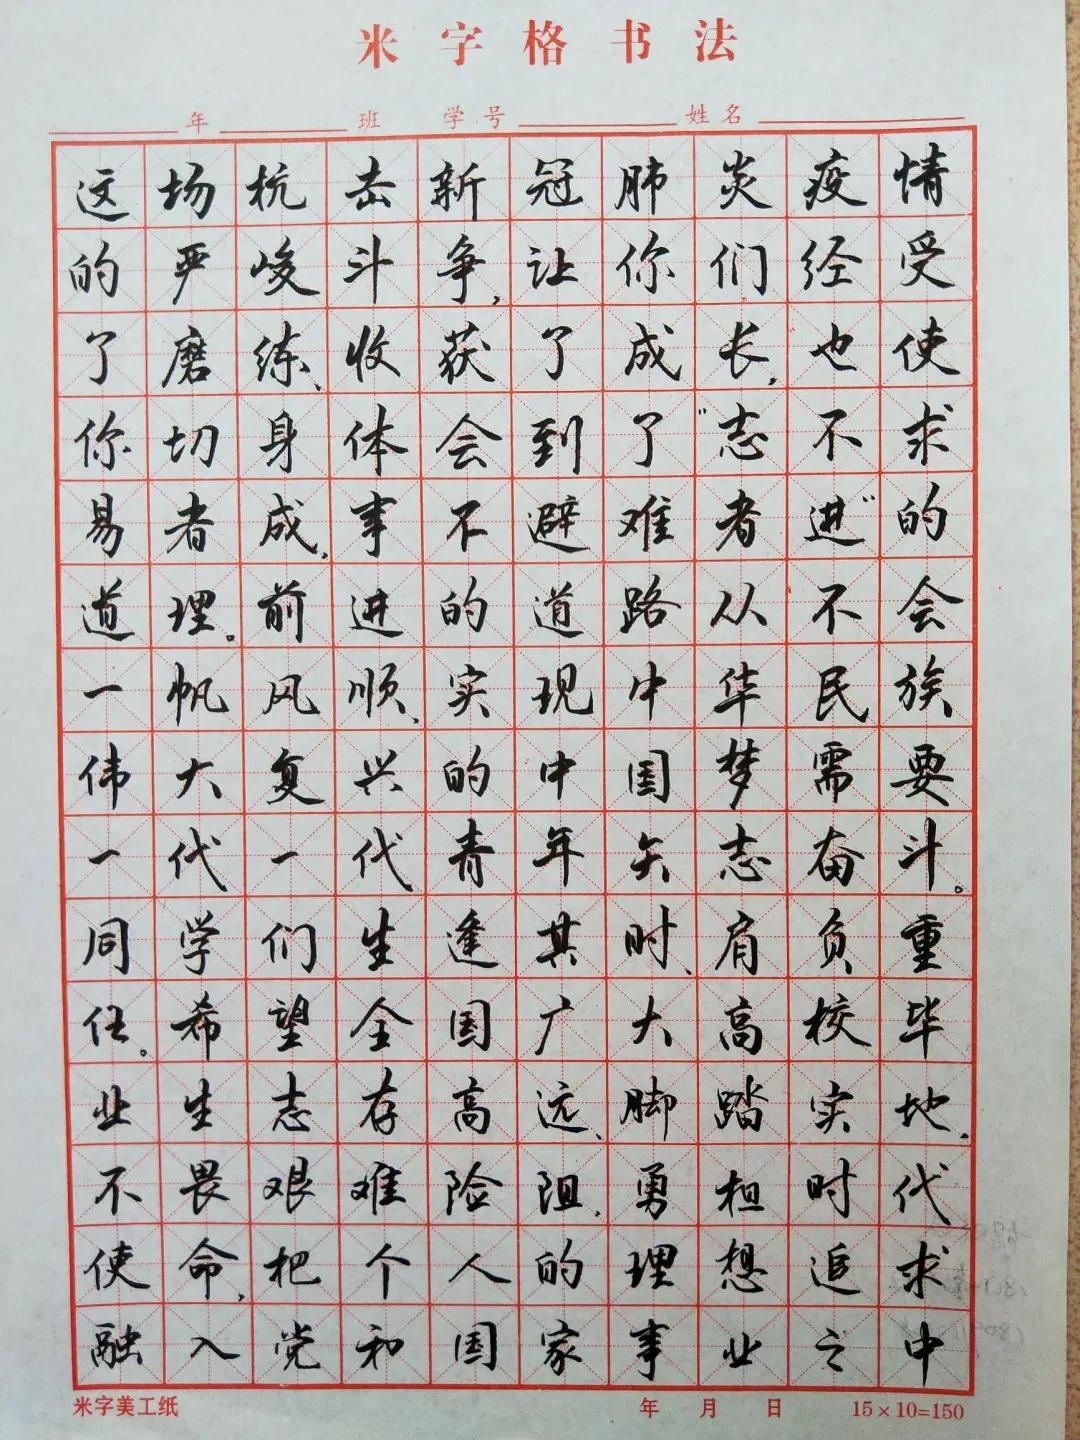 米字格书法
年 班 学号 姓名
这场抗击新冠肺炎疫情
的严峻斗争,让你们经受
了磨练、收获了成长,也使
你切身体会到了“志不求
易者成,事不避难者进”的
道理。前进的道路从不会
一帆风顺、实现中华民族
伟大复兴的中国梦需要
一代一代青年矢志奋斗。
同学们生逢其时、肩负重
任。希望全国广大高校毕
业生志存高远、脚踏实地、
不畏艰难险阻、勇担时代
使命,把个人的理想追求
融入党和国家事业之中
米字美工纸 年 月 日 15×10=150